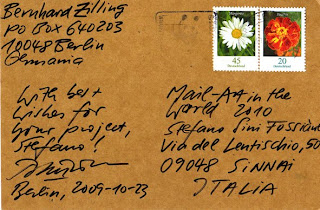 Bernhard Zilling
PO Box 640203
10048 Berlin
Germania
45
Deutschland
20
Deutschland
With best
wishes for
your project,
Stefano!
Berlin, 2009-10-23
Mail-Art in the
World 2010
Stefano Sini Fossiant
Via del Lentischio, 50
09048 SINNAI
ITALIA